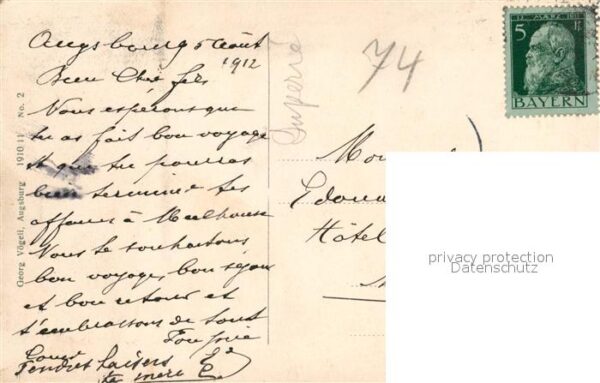 Augsbourg 5 Août
1912
Bien Cher fils
Nous espérons que
tu as fait bon voyage
et que tu pourras
bien terminer tes
affaires à Mulhouse
Nous te souhaitons
bon voyage, bon séjour
et bon retour et
t'embrassons de tout
Tendres baisers
ta mère
Georg Vögeli, Augsburg 1910/11 No. 2
74
12. MÄRZ 1911
5
BAYERN
Hôtel
privacy protection
Datenschutz